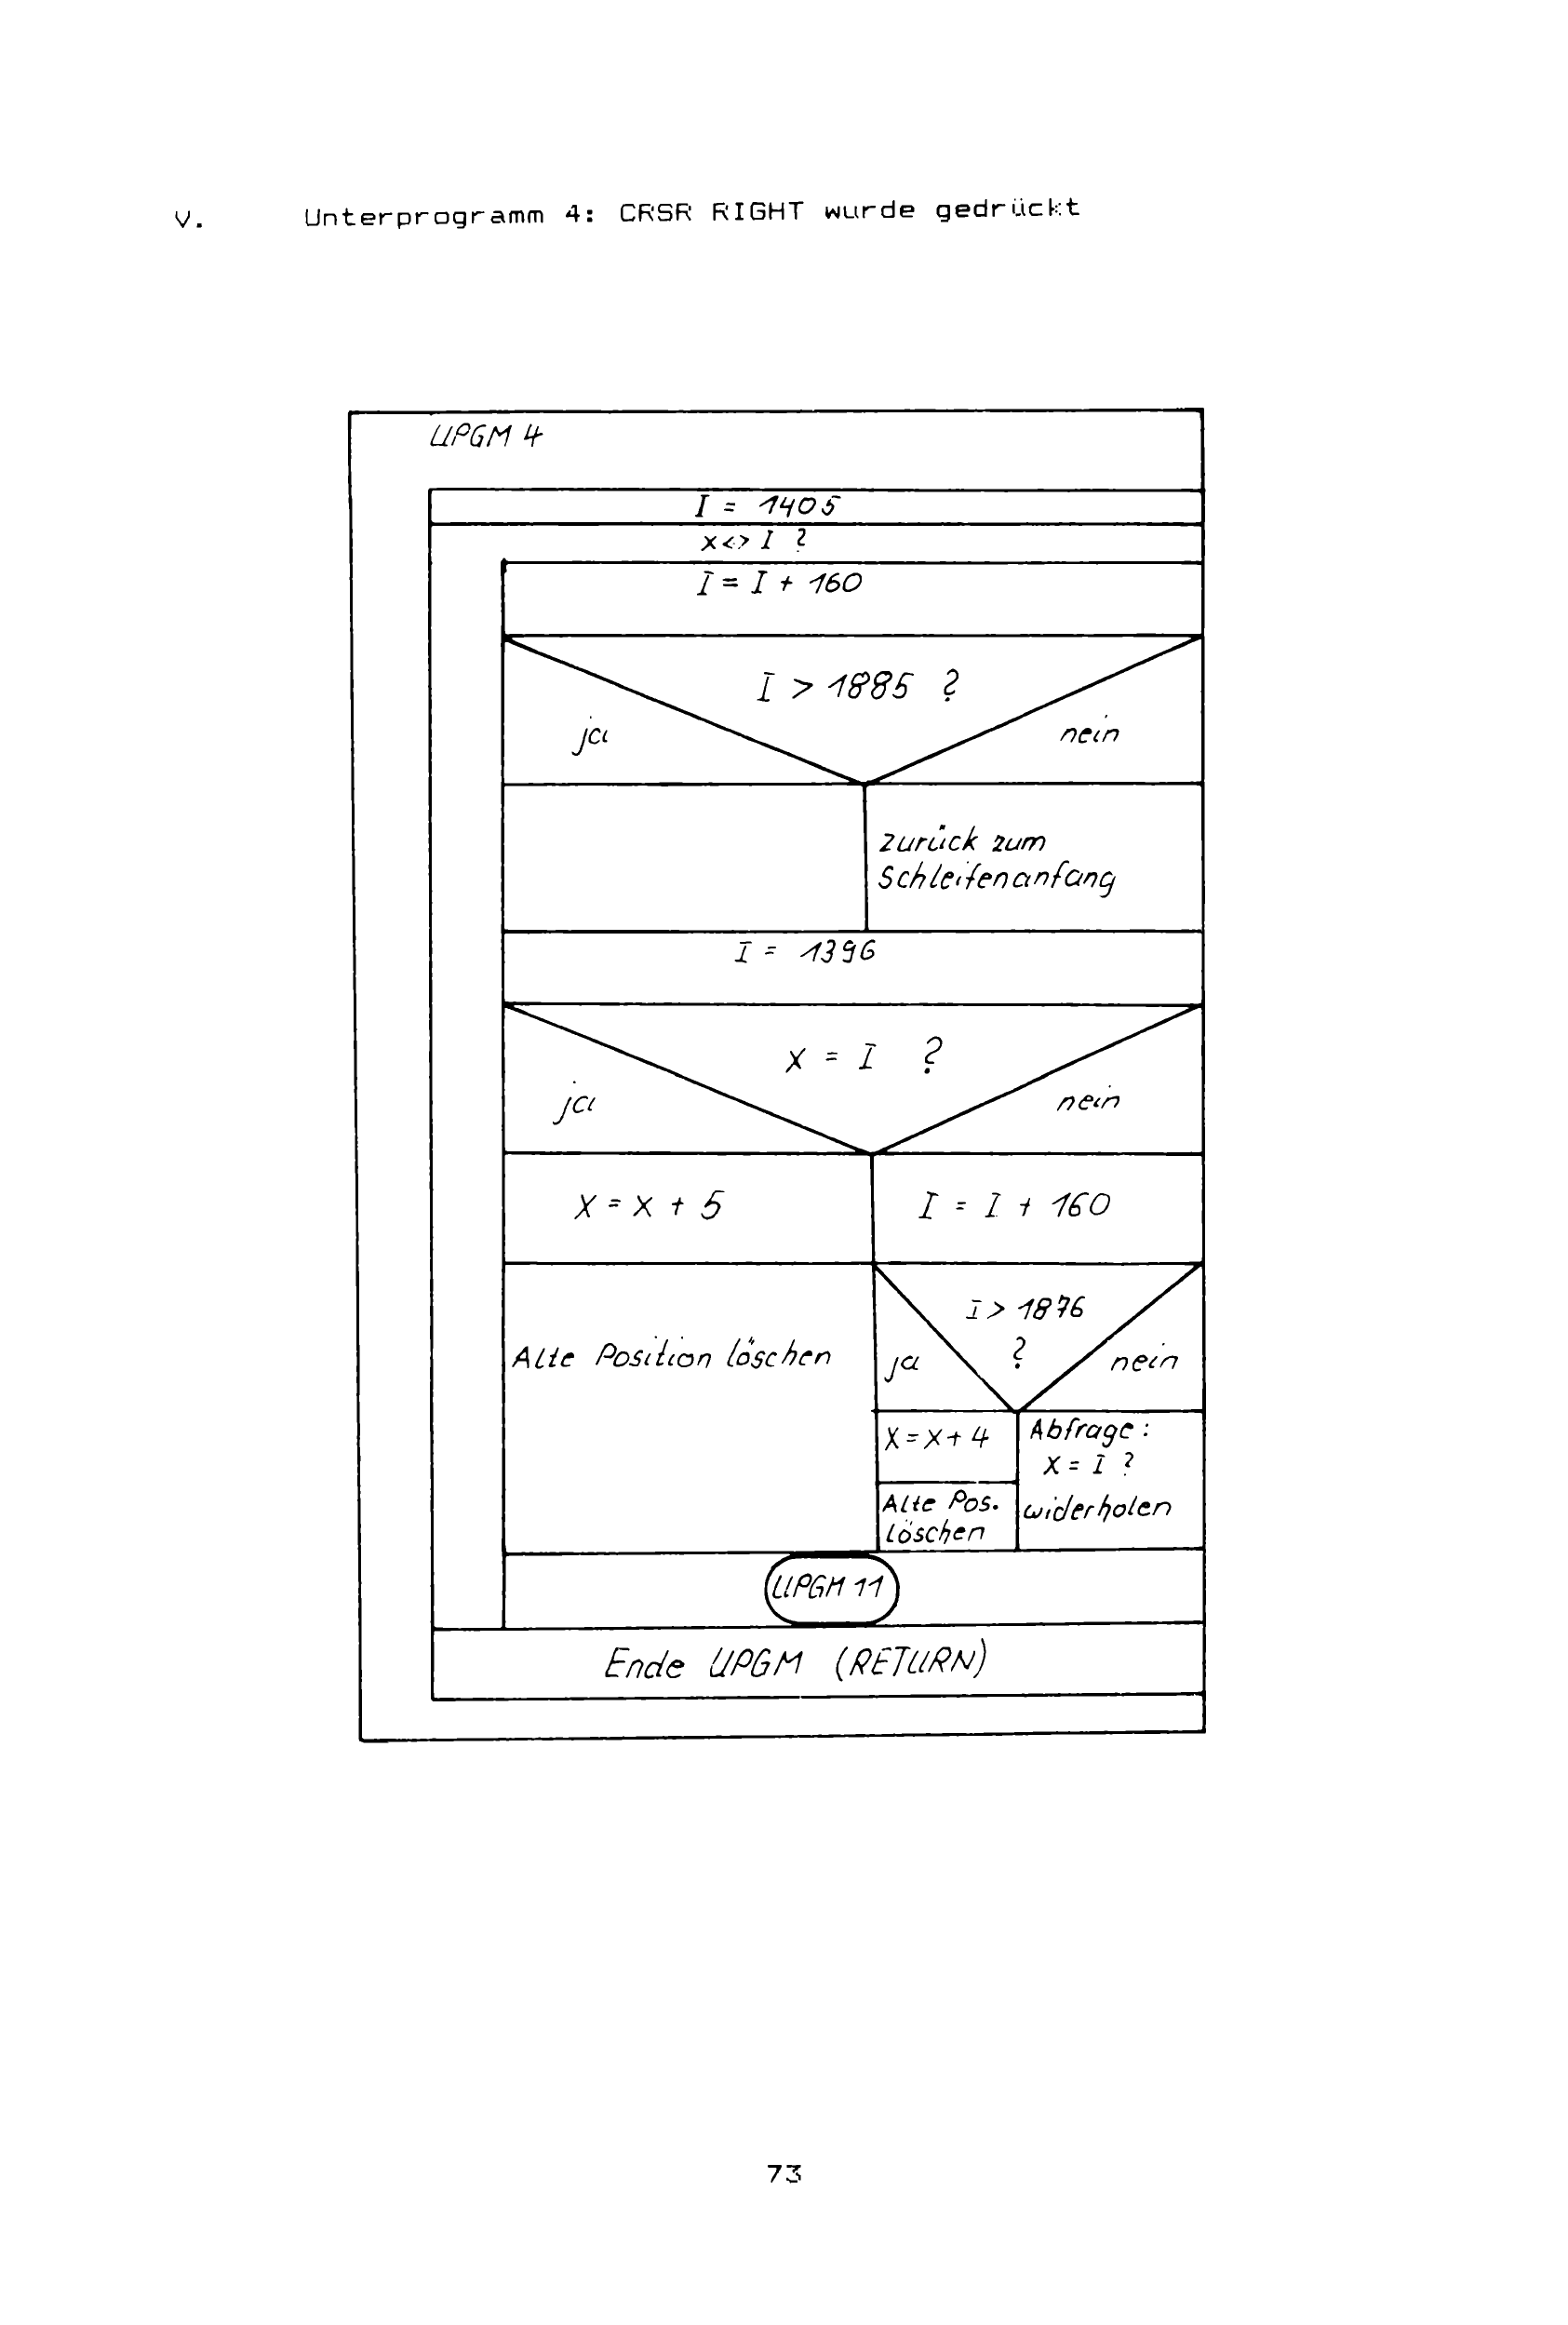 V. Unterprogramm 4: CRSR RIGHT wurde gedrückt
UPGM 4
I = 1405
X<>I ?
I = I + 160
I > 1885 ?
ja
nein
zurück zum
Schleifenanfang
I = 1396
X = I ?
ja
nein
X = X + 5
I = I + 160
I > 1876
?
ja
nein
Alte Position löschen
X = X + 4
Alte Pos.
löschen
Abfrage:
X = I ?
widerholen
UPGM 11
Ende UPGM (RETURN)
73